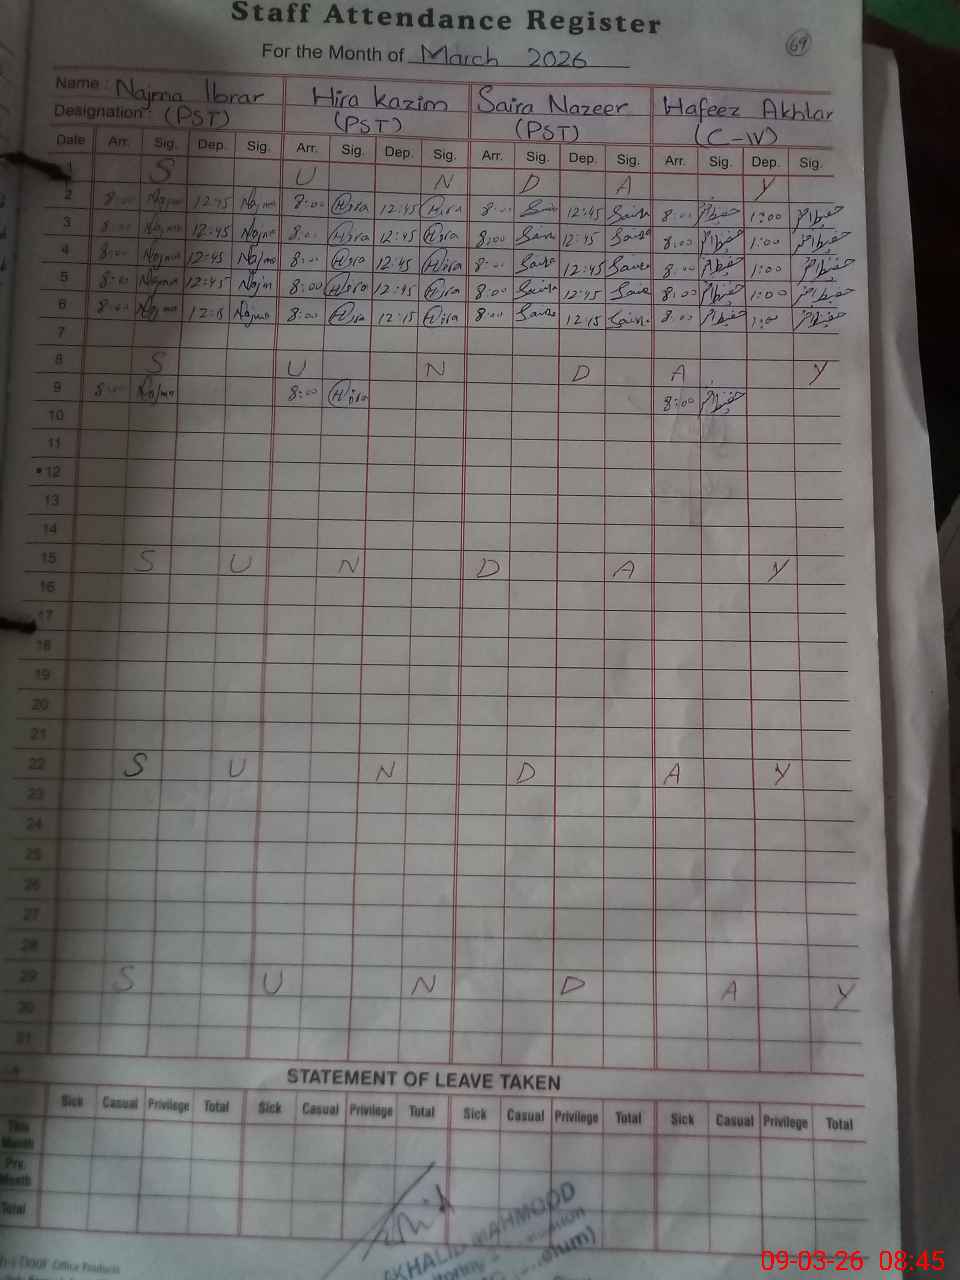 Staff Attendance Register
For the Month of March 2026
69
Name : Najma Ibrar Hira Kazim Saira Nazeer Hafeez Akhtar
Designation : (PST) (PST) (PST) (C-IV)
Date Arr. Sig. Dep. Sig. Arr. Sig. Dep. Sig. Arr. Sig. Dep. Sig. Arr. Sig. Dep. Sig.
1 S U N D A Y
2 8:00 Najma 12:45 Najma 8:00 Hira 12:45 Hira 8:00 Saira 12:45 Saira 8:00 1:00
3 8:00 Najma 12:45 Najma 8:00 Hira 12:45 Hira 8:00 Saira 12:45 Saira 8:00 1:00
4 8:00 Najma 12:45 Najma 8:00 Hira 12:45 Hira 8:00 Saira 12:45 Saira 8:00 1:00
5 8:00 Najma 12:45 Najm 8:00 Hira 12:45 Hira 8:00 Saira 12:45 Saira 8:00 1:00
6 8:00 Najma 12:15 Najma 8:00 Hira 12:15 Hira 8:00 Saira 12:15 Saira 8:00 1:00
7
8 S U N D A Y
9 8:00 Najma 8:00 Hira 8:00
10
11
12
13
14
15 S U N D A Y
16
17
18
19
20
21
22 S U N D A Y
23
24
25
26
27
28
29 S U N D A Y
30
31
STATEMENT OF LEAVE TAKEN
Sick Casual Privilege Total Sick Casual Privilege Total Sick Casual Privilege Total Sick Casual Privilege Total
This Month
Pre. Month
Total
KHALID MAHMOOD
Office Products
09-03-26 08:45